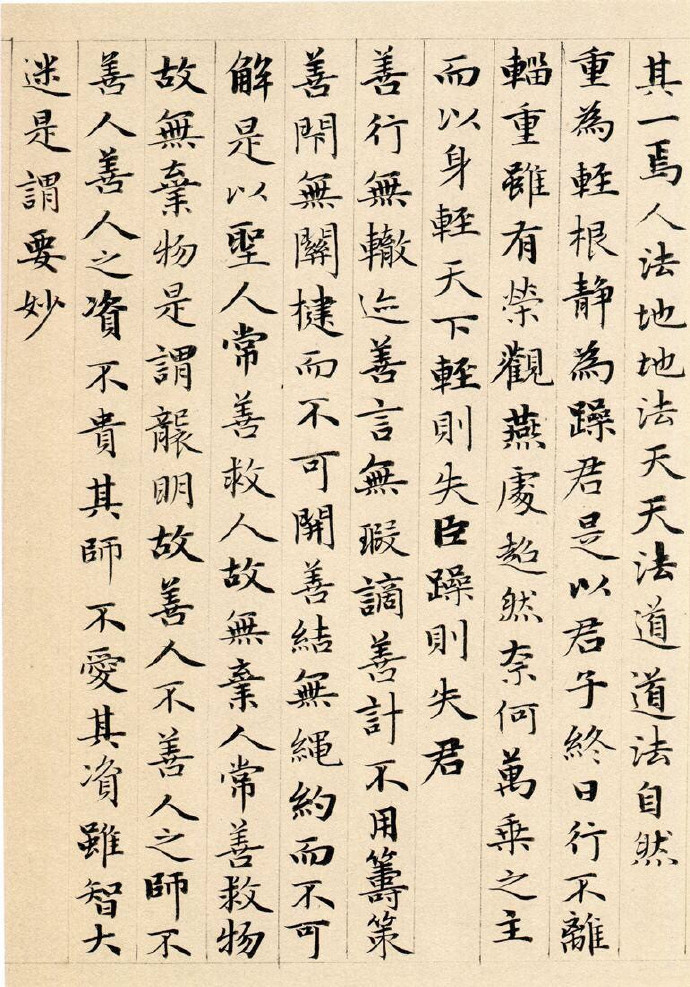 其一焉人法地地法天天法道道法自然
重為輕根静為躁君是以君子終日行不離
輜重雖有榮觀燕處超然奈何萬乗之主
而以身輕天下輕則失臣躁則失君
善行無轍迹善言無瑕謫善計不用籌策
善閇無關楗而不可開善結無繩約而不可
解是以聖人常善救人故無棄人常善救物
故無棄物是謂襲明故善人不善人之師不
善人善人之資不貴其師不愛其資雖智大
迷是謂要妙